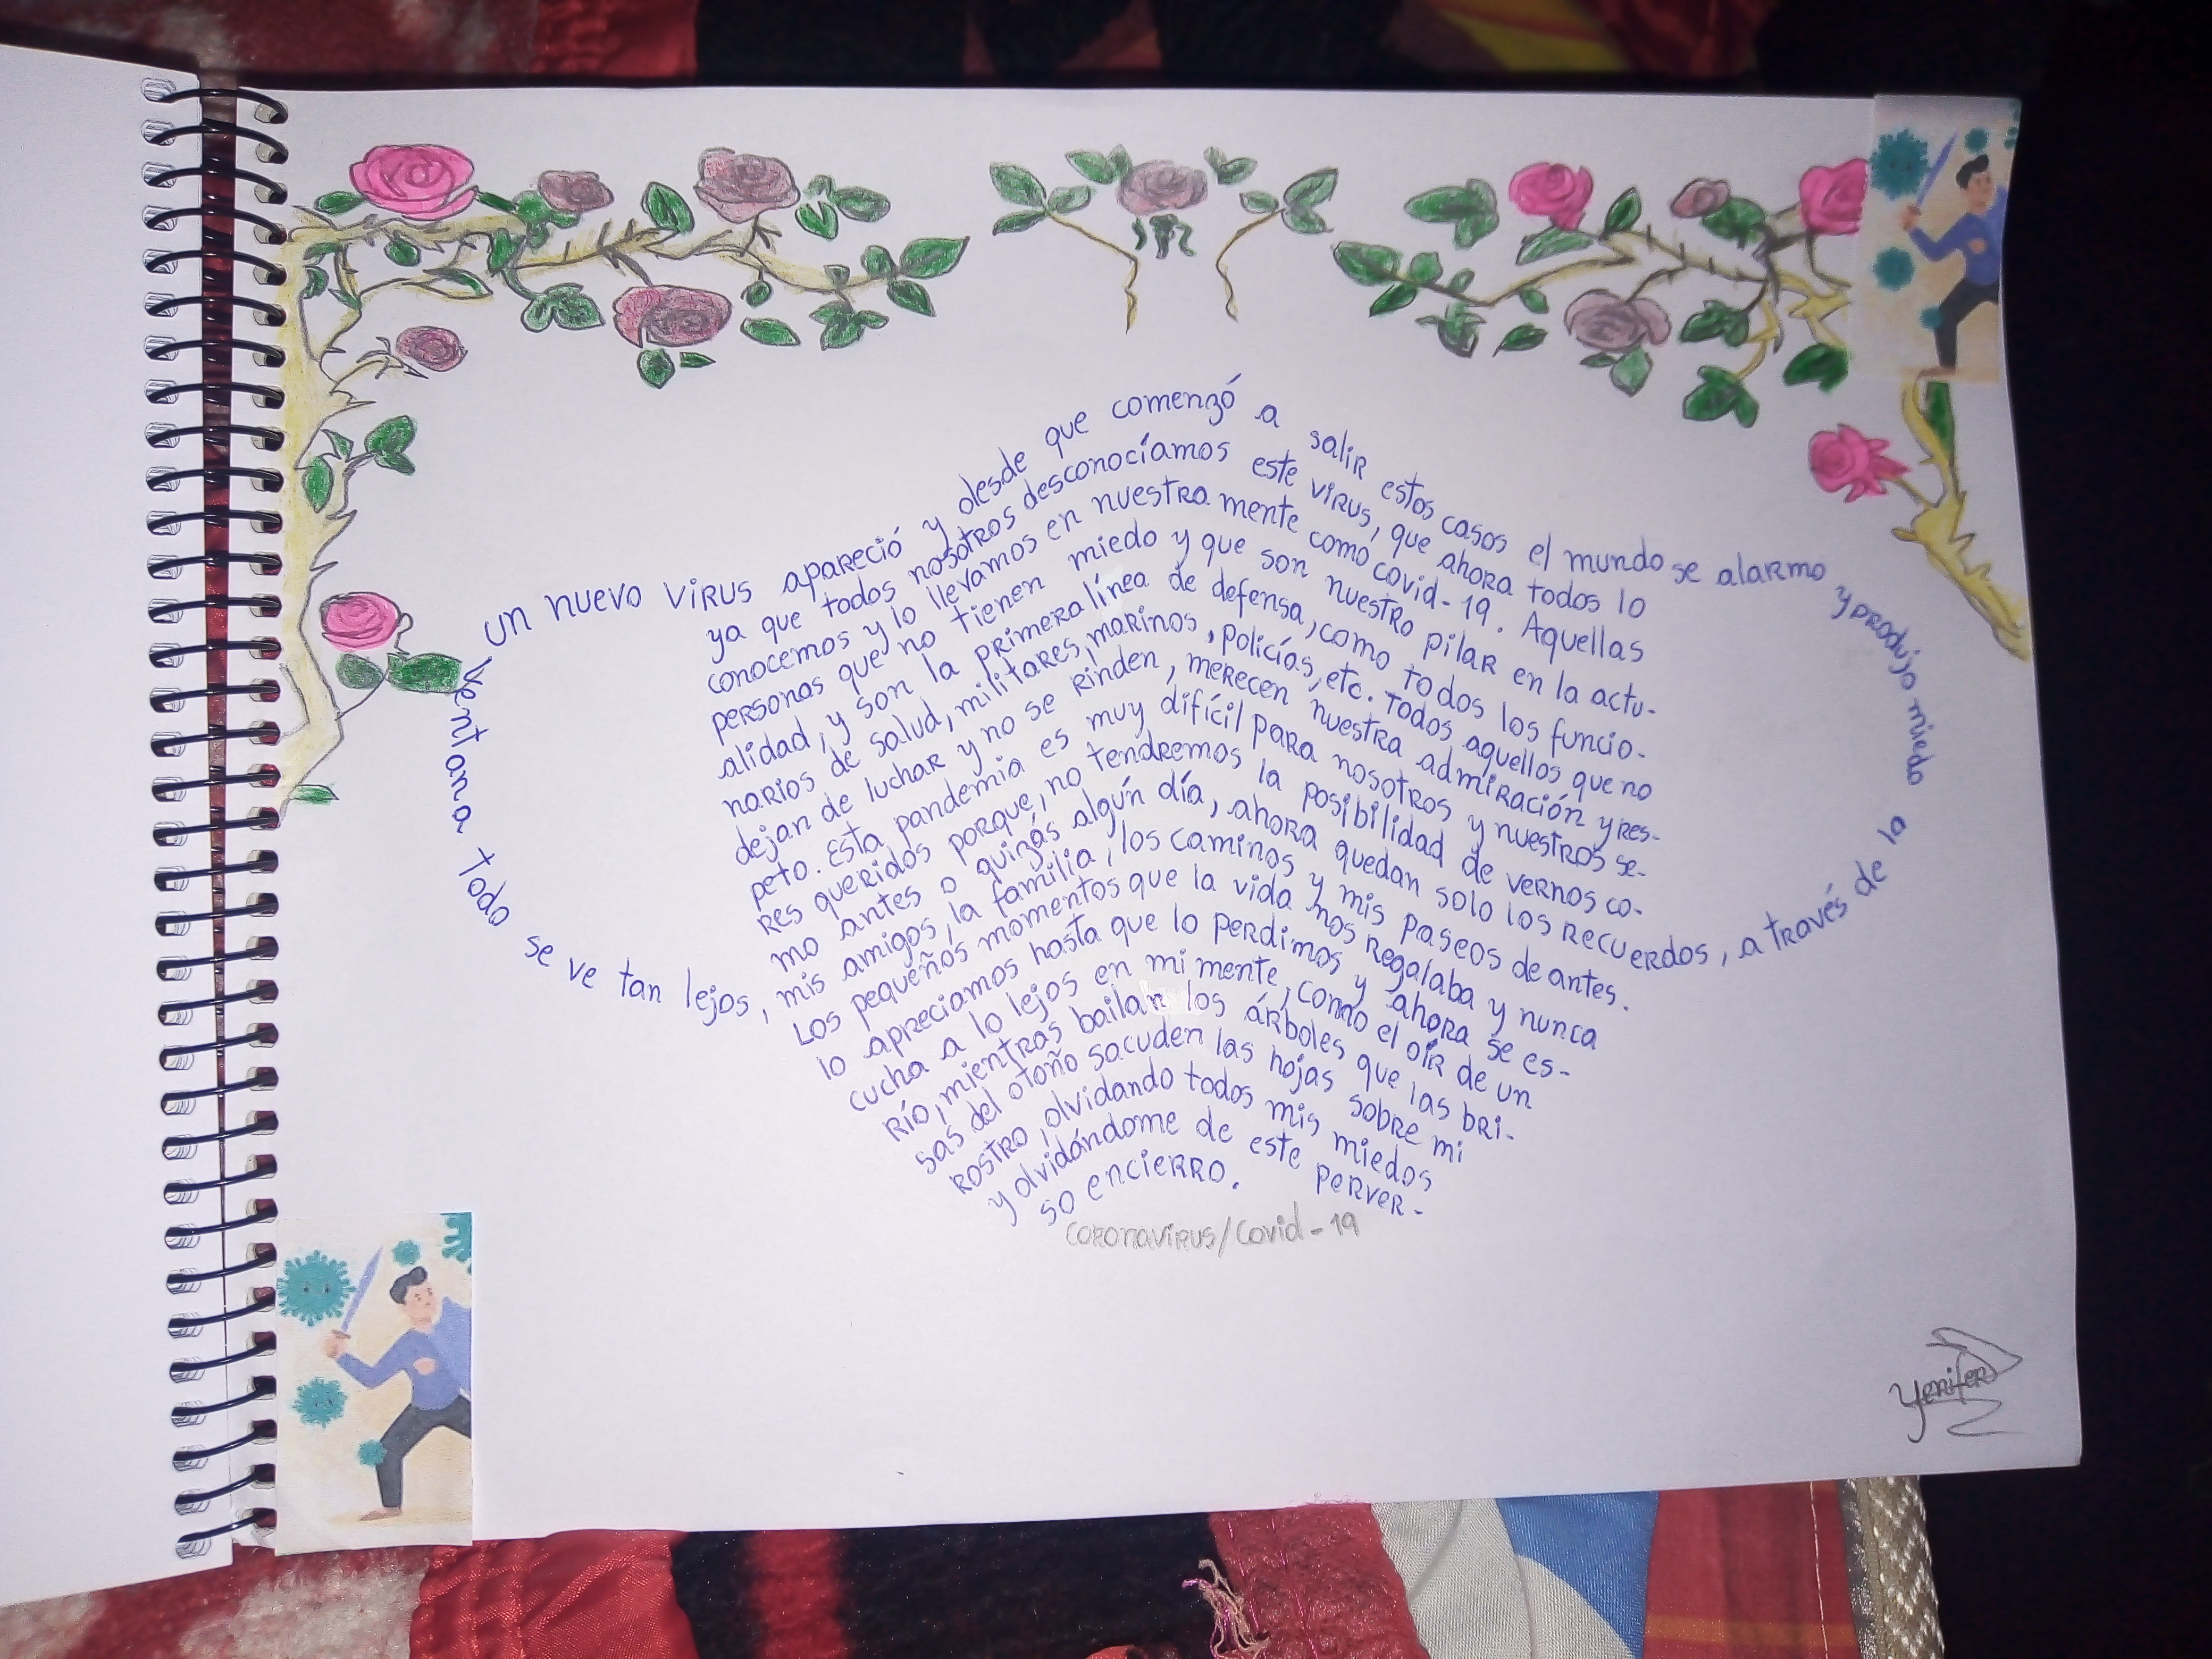 un nuevo virus apareció y desde que comenzó a salir estos casos el mundo se alarmo y produjo miedo
ya que todos nosotros desconocíamos este virus, que ahora todos lo
conocemos y lo llevamos en nuestra mente como covid-19. Aquellas
personas que no tienen miedo y que son nuestro pilar en la actu-
alidad, y son la primera línea de defensa, como todos los funcio-
narios de salud, militares, marinos, policías, etc. Todos aquellos que no
dejan de luchar y no se rinden, merecen nuestra admiración y res-
peto. Esta pandemia es muy difícil para nosotros y nuestros se-
res queridos porque, no tendremos la posibilidad de vernos co-
mo antes o quizás algún día, ahora quedan solo los recuerdos, a través de la
ventana todo se ve tan lejos, mis amigos, la familia, los caminos y mis paseos de antes.
Los pequeños momentos que la vida nos regalaba y nunca
lo apreciamos hasta que lo perdimos y ahora se es-
cucha a lo lejos en mi mente, como el oír de un
río, mientras bailan los árboles que las bri-
sas del otoño sacuden las hojas sobre mi
rostro, olvidando todos mis miedos
y olvidándome de este perver-
so encierro.
Coronavirus/Covid-19
Yenifer